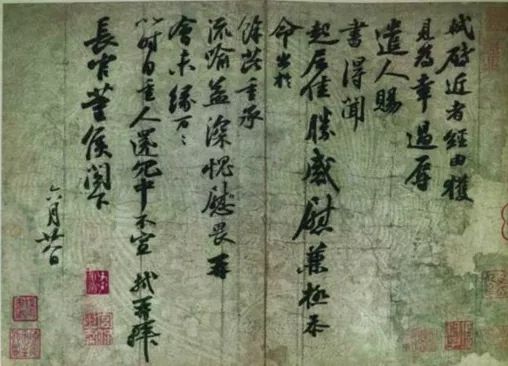 軾啓近者經由獲
見為幸過辱
遣人賜
書得聞
起居佳勝感慰兼極忝
命出於
餘芘重承
流喻益深愧慰畏再
會未緣万〻
以時自重人還冗中不宣軾再拜
長官董侯閤下
六月廿八日